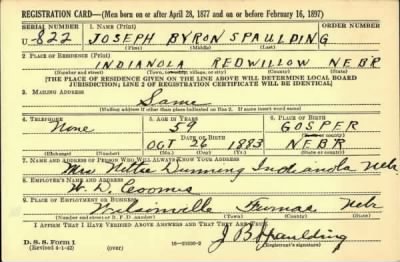 REGISTRATION CARD—(Men born on or after April 28, 1877 and on or before February 16, 1897)
SERIAL NUMBER 1. NAME (Print) ORDER NUMBER
U 822 JOSEPH BYRON SPAULDING
(First) (Middle) (Last)
2. PLACE OF RESIDENCE (Print)
INDIANOLA REDWILLOW NEBR
(Number and street) (Town, township, village, or city) (County) (State)
[THE PLACE OF RESIDENCE GIVEN ON THE LINE ABOVE WILL DETERMINE LOCAL BOARD
JURISDICTION; LINE 2 OF REGISTRATION CERTIFICATE WILL BE IDENTICAL]
3. MAILING ADDRESS
Same
[Mailing address if other than place indicated on line 2. If same insert word same]
4. TELEPHONE 5. AGE IN YEARS 6. PLACE OF BIRTH
None 59 GOSPER
DATE OF BIRTH (Town or county)
OCT 26 1883 NEBR
(Exchange) (Number) (Mo.) (Day) (Yr.) (State or country)
7. NAME AND ADDRESS OF PERSON WHO WILL ALWAYS KNOW YOUR ADDRESS
Mrs Nettie Dunning Indianola Neb
8. EMPLOYER'S NAME AND ADDRESS
W. D.
9. PLACE OF EMPLOYMENT OR BUSINESS
Wilsonville Furnas Neb
(Number and street or R. F. D. number) (Town) (County) (State)
I AFFIRM THAT I HAVE VERIFIED ABOVE ANSWERS AND THAT THEY ARE TRUE.
J B Spaulding
D. S. S. Form 1
(Revised 4-1-42) (over) 16—21630-2 (Registrant's signature)